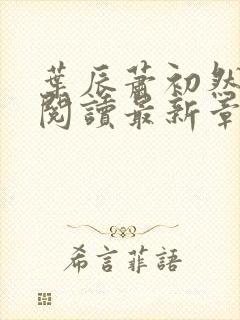 葉辰蕭初然
閱讀最新章
希言菲語